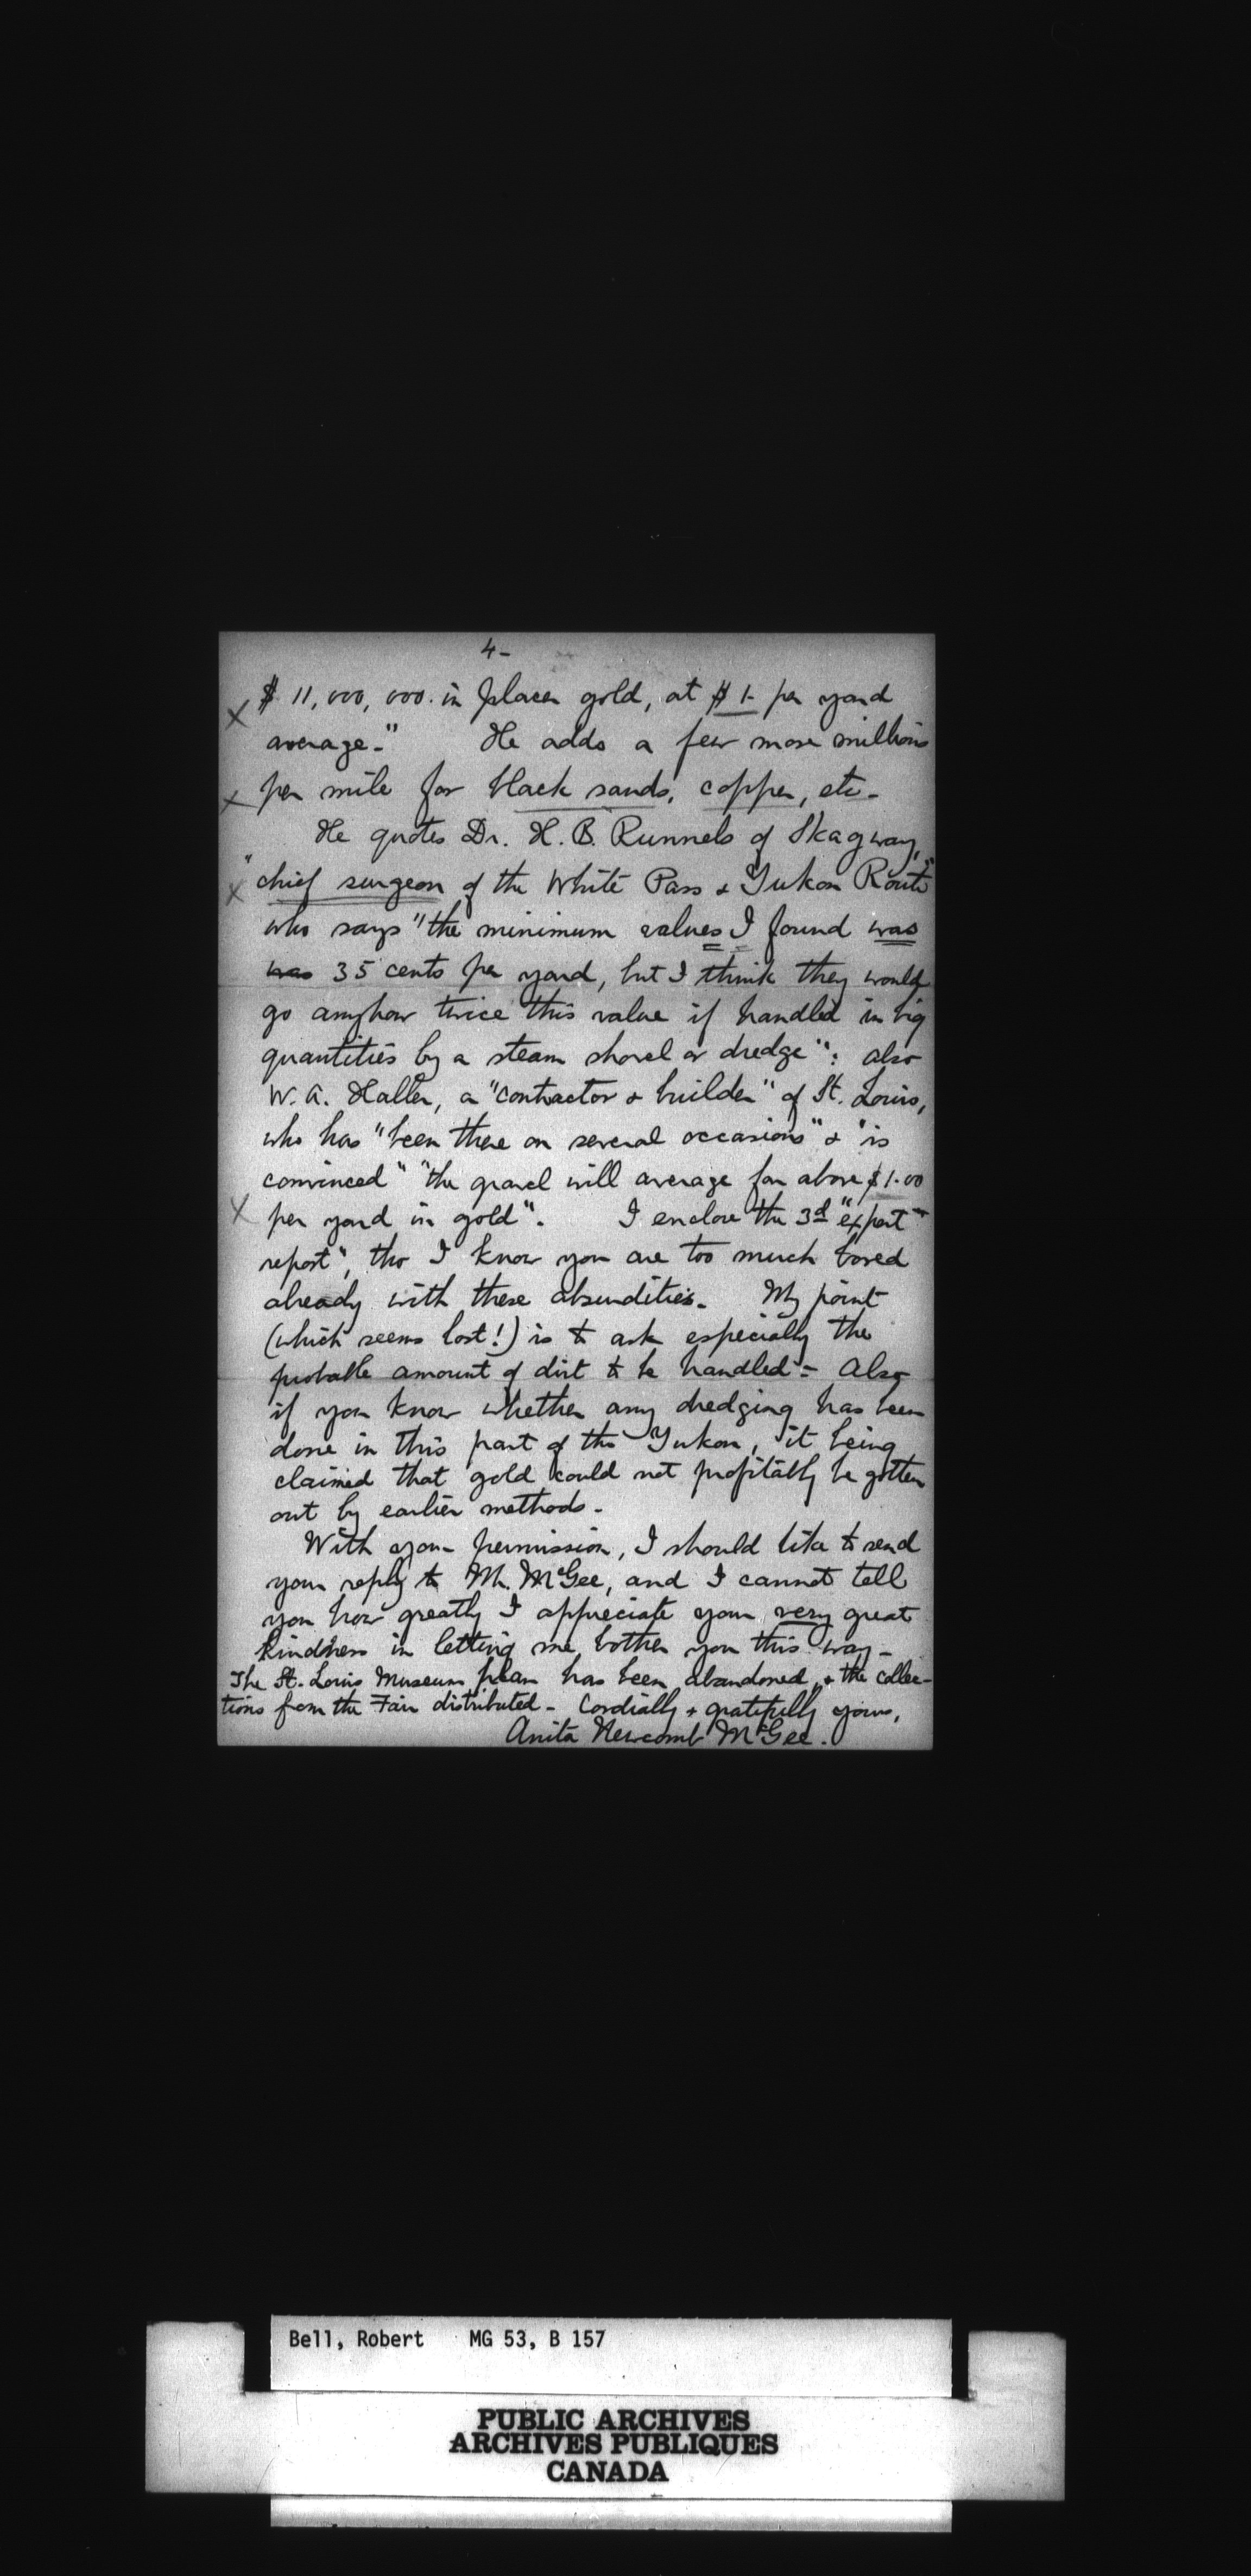 4-
$ 11,000,000. in placer gold, at $ 1- per yard
average-" He adds a few more millions
per mile for black sands, copper, etc-
He quotes Dr. H. B. Runnels of Skagway,
"chief surgeon of the White Pass & Yukon Route"
who says "the minimum values I found was
was 35 cents per yard, but I think they would
go anyhow twice this value if handled in big
quantities by a steam shovel or dredge": also
W. A. Haller, a "contractor & builder" of St. Louis,
who has "been there on several occasions" & "is
convinced" "the gravel will average far above $1.00
per yard in gold". I enclose the 3d "expert
report", tho I know you are too much bored
already with these absurdities. My point
(which seems lost!) is to ask especially the
probable amount of dirt to be handled - Also
if you know whether any dredging has been
done in this part of the Yukon, it being
claimed that gold could not profitably be gotten
out by earlier methods -
With your permission, I should like to send
your reply to Mr. McGee, and I cannot tell
you how greatly I appreciate your very great
kindness in letting me bother you this way -
The St. Louis Museum plan has been abandoned, & the collec-
tions from the Fair distributed - Cordially & gratefully yours,
Anita Newcomb McGee.
Bell, Robert MG 53, B 157
PUBLIC ARCHIVES
ARCHIVES PUBLIQUES
CANADA